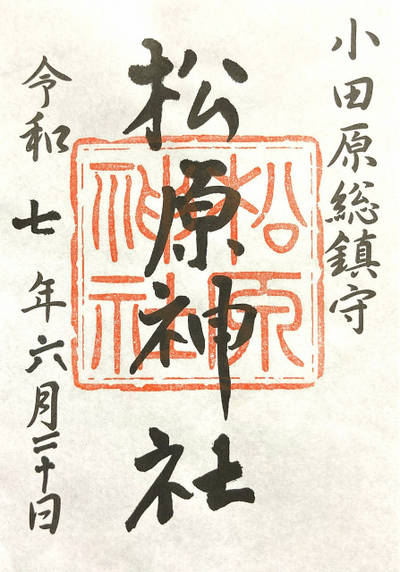 小田原総鎮守
松原神社
令和七年六月三十日
松原
神社